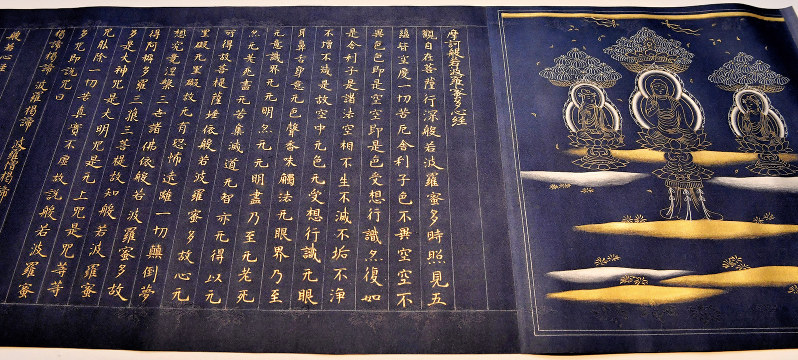 摩訶般若波羅蜜多心経
觀自在菩薩行深般若波羅蜜多時照見五
蘊皆空度一切苦厄舍利子色不異空空不
異色色即是空空即是色受想行識亦復如
是舍利子是諸法空相不生不滅不垢不淨
不增不減是故空中无色无受想行識无眼
耳鼻舌身意无色聲香味觸法无眼界乃至
无意識界无无明亦无无明盡乃至无老死
亦无老死盡无苦集滅道无智亦无得以无
所得故菩提薩埵依般若波羅蜜多故心无
罣礙无罣礙故无有恐怖遠離一切顛倒夢
想究竟涅槃三世諸佛依般若波羅蜜多故
得阿耨多羅三藐三菩提故知般若波羅蜜
多是大神咒是大明咒是无上咒是无等等
咒能除一切苦真實不虛故說般若波羅蜜
多咒即說咒曰
揭諦揭諦 波羅揭諦 波羅僧揭諦
般若心経